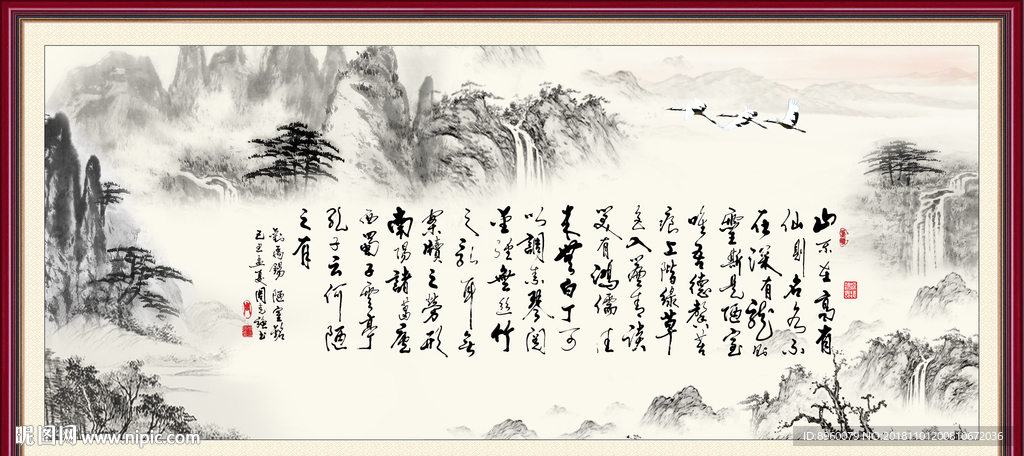 山不在高有
仙則名水不
在深有龍則
靈斯是陋室
唯吾德馨苔
痕上階緑草
色入簾青談
笑有鴻儒往
来無白丁可
以調素琴閱
金經無絲竹
之乱耳無
案牘之勞形
南陽諸葛廬
西蜀子雲亭
孔子云何陋
之有
劉禹錫 陋室銘
己丑孟夏周書
昵图网 www.nipic.com
ID:8960079 NO:20181101200810672036